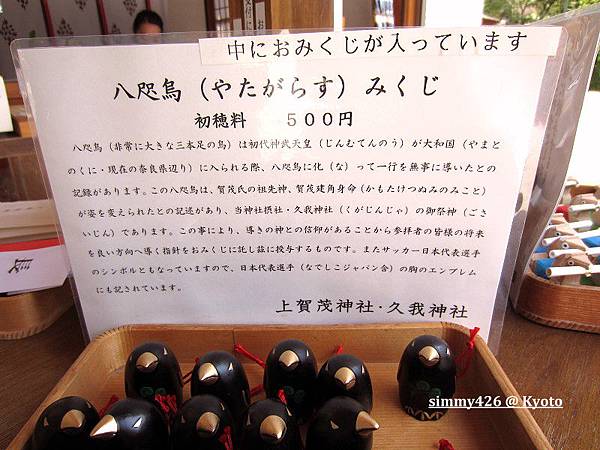 中におみくじが入っています
八咫烏（やたがらす）みくじ
初穂料　５００円
八咫烏（非常に大きな三本足の烏）は初代神武天皇（じんむてんのう）が大和国（やまと
のくに・現在の奈良県辺り）に入られる際、八咫烏に化（な）って一行を無事に導いたとの
記録があります。この八咫烏は、賀茂氏の祖先神、賀茂建角身命（かもたけつぬみのみこと）
が姿を変えられたとの記述があり、当神社摂社・久我神社（くがじんじゃ）の御祭神（ごさ
いじん）であります。この事により、導きの神との信仰があることから参拝者の皆様の将来
を良い方向へ導く指針をおみくじに託し茲に授与するものです。またサッカー日本代表選手
のシンボルともなっていますので、日本代表選手（なでしこジャパン含）の胸のエンブレム
にも記されています。
上賀茂神社・久我神社
simmy426 @ Kyoto